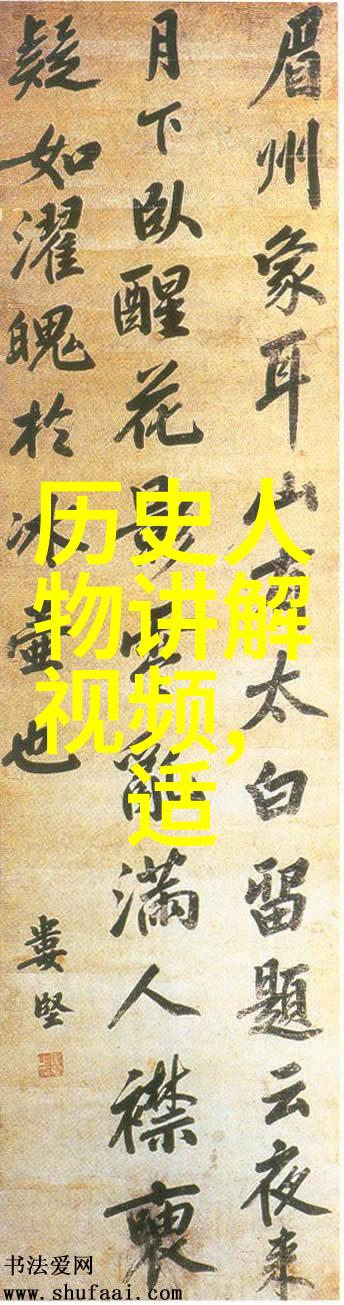 眉州象耳山太白留題云夜来
月下臥醒花影亂滿人襟
疑如濯魄於冰壷也
婁堅
历史人
物讲解
视频,
适
书法爱网
www.shufaai.com